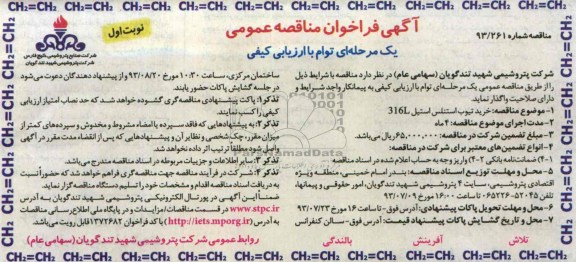 آگهی فراخوان مناقصه عمومی
یک مرحله‌ای توام با ارزیابی کیفی
مناقصه شماره ۹۳/۲۶۱
نوبت اول
شرکت صنایع پتروشیمی خلیج فارس
شرکت پتروشیمی شهید تندگویان
شرکت پتروشیمی شهید تندگویان (سهامی عام) در نظر دارد مناقصه با شرایط ذیل
را از طریق مناقصه عمومی یک مرحله‌ای توام با ارزیابی کیفی به پیمانکار واجد شرایط و
دارای صلاحیت واگذار نماید.
۱- موضوع مناقصه: خرید تیوب استنلس استیل 316L
۲- مدت اجرای موضوع مناقصه: ۴ ماه
۳- مبلغ تضمین شرکت در مناقصه: ۶۵,۰۰۰,۰۰۰ ریال می‌باشد.
۴- انواع تضمین‌های معتبر برای شرکت در مناقصه:
۴-۱) ضمانتنامه بانکی ۴-۲) واریز وجه به حساب اعلام شده در اسناد مناقصه
۵- محل و مهلت توزیع اسناد مناقصه: بندر امام خمینی، منطقه ویژه
اقتصادی پتروشیمی، سایت ۴ پتروشیمی شهید تندگویان، امور حقوقی و پیمانها،
تلفن ۵۲۰۴۵-۰۶۵۲۲۶ تا ساعت ۱۶:۰۰ مورخ ۹۳/۰۷/۰۹
۶- محل و مهلت تحویل پاکات پیشنهادی: آدرس فوق - تا ساعت ۱۶ مورخ ۹۳/۰۷/۲۳
۷- محل و تاریخ گشایش پاکات پیشنهاد قیمت: آدرس فوق - سالن کنفرانس
ساختمان مرکزی، ساعت ۱۰:۳۰ مورخ ۹۳/۰۸/۲۰ و از پیشنهاد دهندگان دعوت می‌شود
در جلسه گشایش پاکات حضور یابند.
تذکر ۱: پاکت پیشنهادی مناقصه‌گری گشوده خواهد شد که حد نصاب امتیاز ارزیابی
کیفی را کسب نمایند.
تذکر ۲: به پیشنهادهایی که فاقد سپرده یا امضاء مشروط و مخدوش و سپرده‌های کمتر از
میزان مقرر، چک شخصی و نظایر آن و پیشنهادهایی که پس از انقضاء مدت مقرر در آگهی
واصل شود مطلقاً ترتیب اثر داده نخواهد شد.
تذکر ۳: سایر اطلاعات و جزییات مربوطه در اسناد مناقصه مندرج می‌باشد.
تذکر ۴: شرکت در فرآیند مناقصه جهت مناقصه‌گری فراهم خواهد شد که حضوراً نسبت
به دریافت اسناد مناقصه اقدام و مشخصات خود را تسلیم دستگاه مناقصه‌گزار نماید.
ضمناً این آگهی در پورتال الکترونیکی پتروشیمی شهید تندگویان به آدرس
www.stpc.ir در قسمت مناقصات/مزایدات و در پایگاه ملی اطلاع رسانی مناقصات
به آدرس (http://iets.mporg.ir) با کد فراخوان ۱۳۷۲۶۸۲ قابل رویت می‌باشد.
تلاش آفرینش بالندگی
روابط عمومی شرکت پتروشیمی شهید تندگویان (سهامی عام)